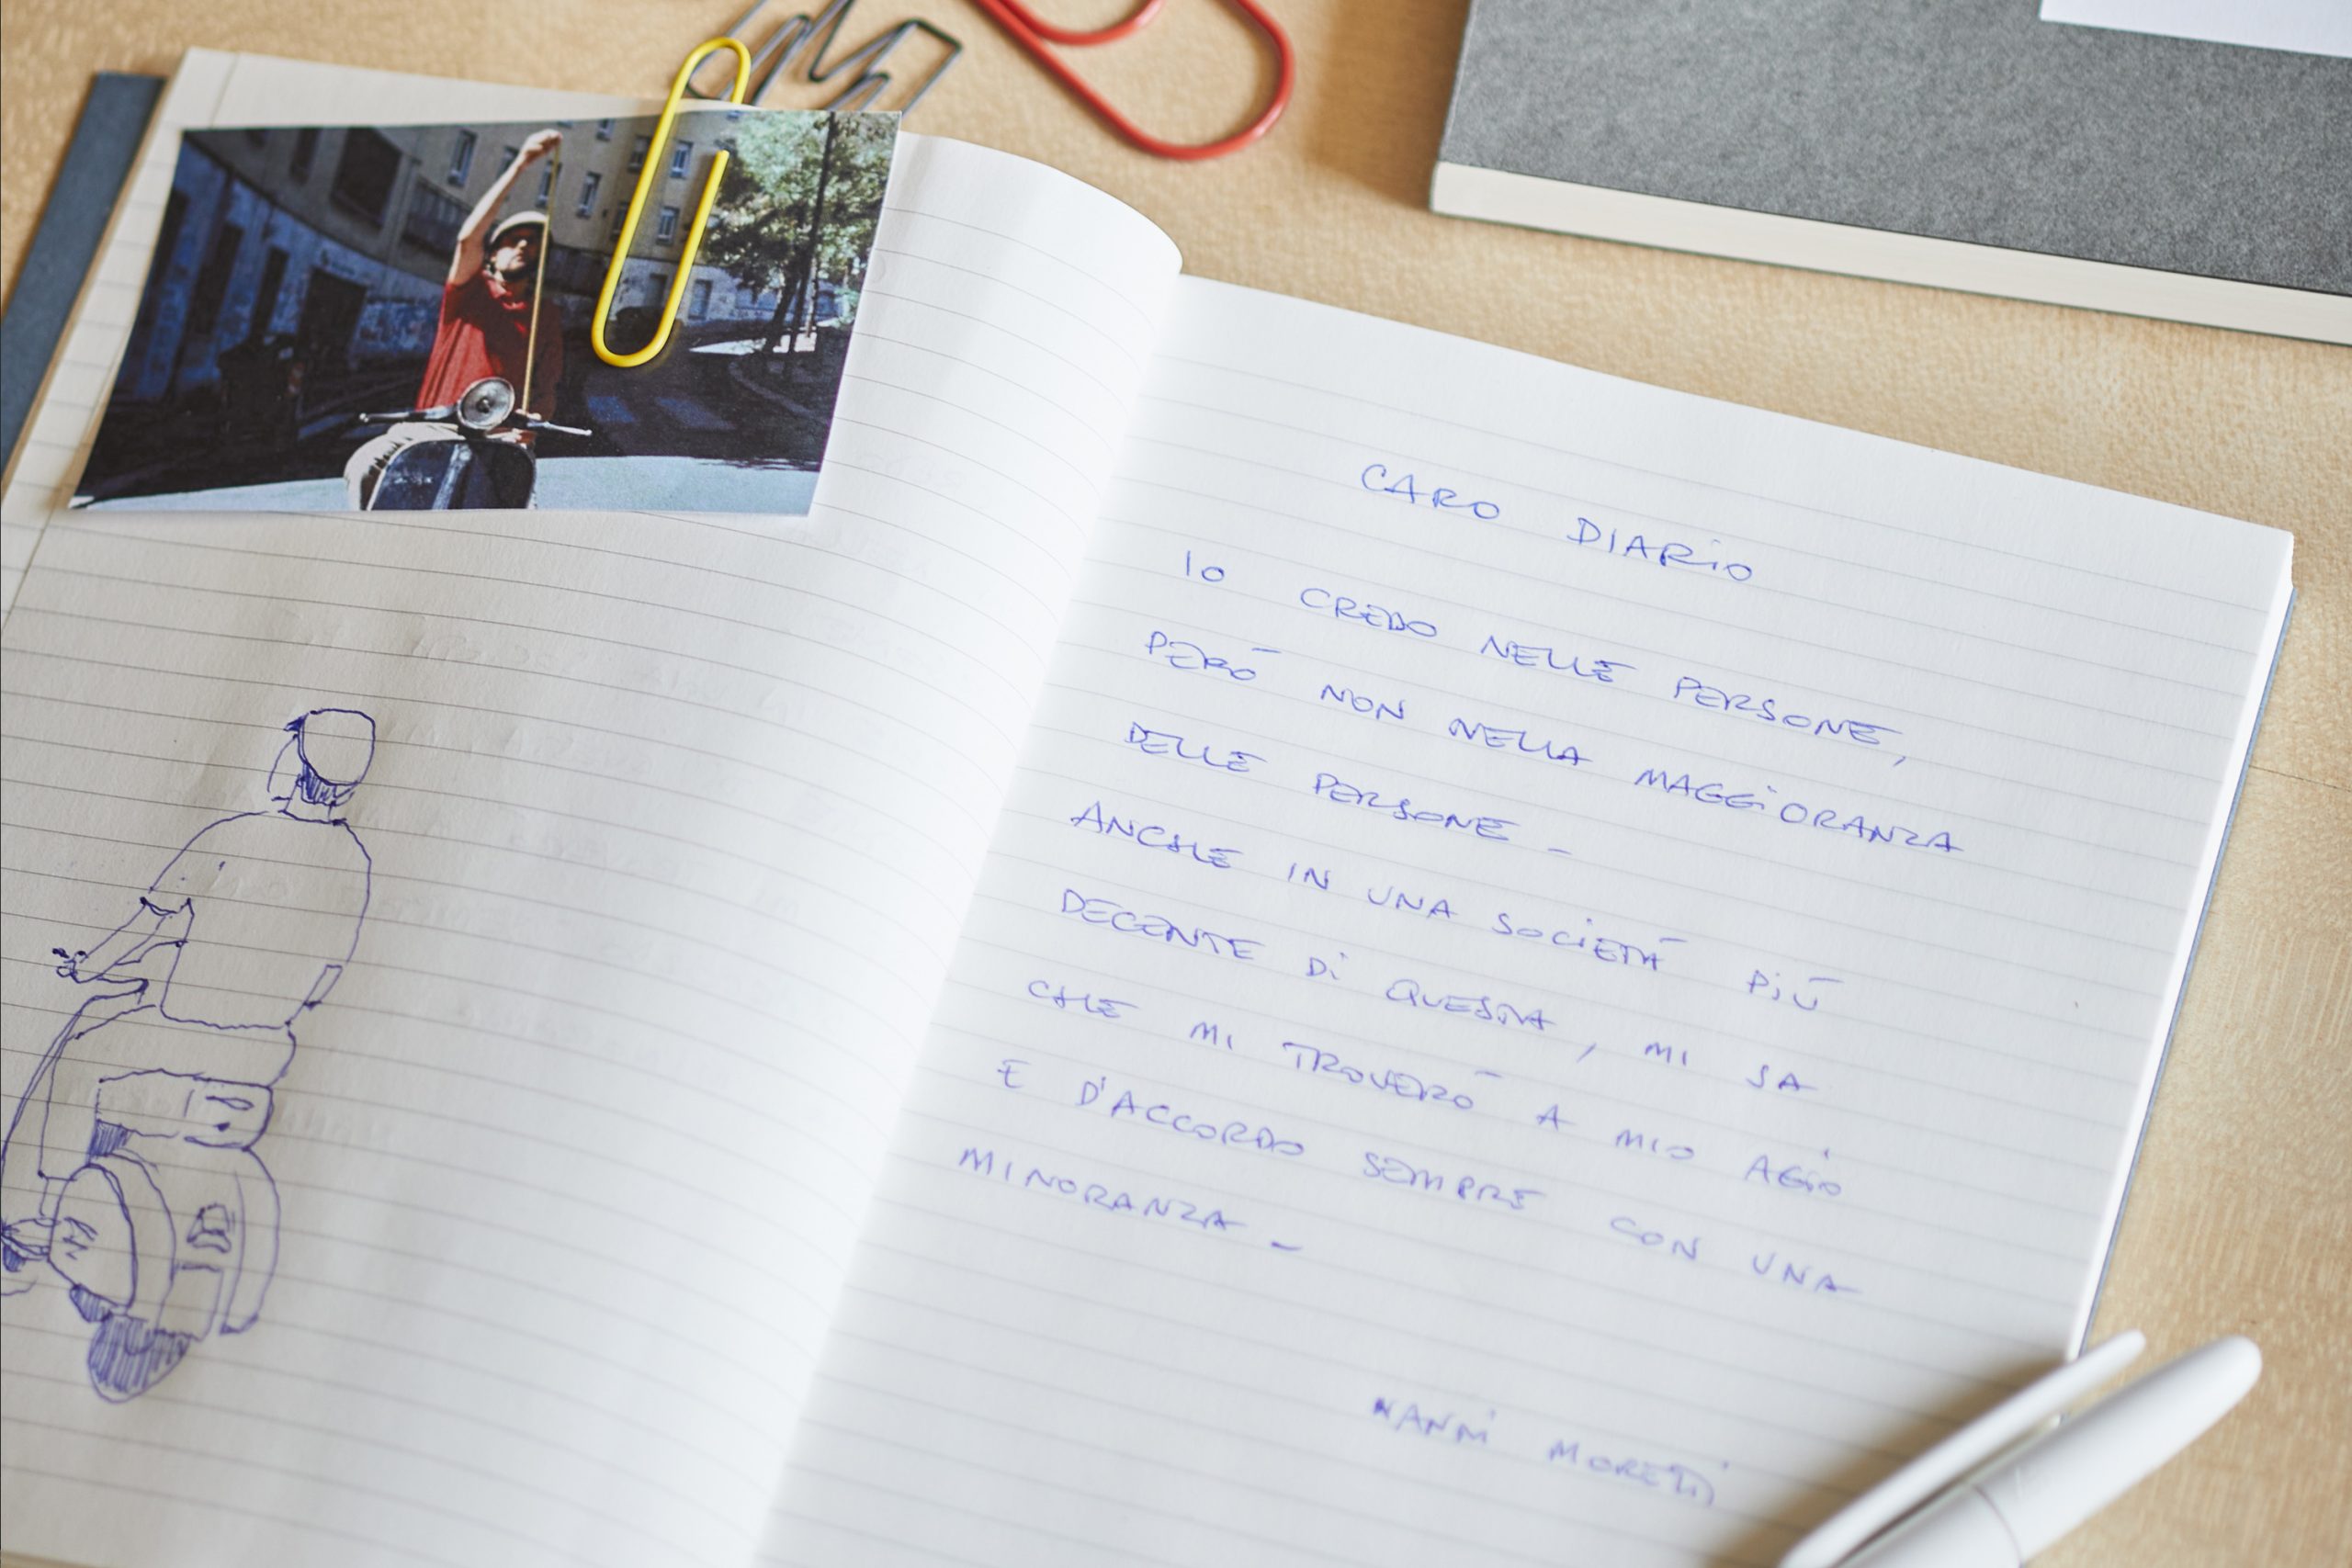 CARO DIARIO
IO CREDO NELLE PERSONE,
PERÒ NON NELLA MAGGIORANZA
DELLE PERSONE -
ANCHE IN UNA SOCIETÀ PIÙ
DECENTE DI QUESTA, MI SA
CHE MI TROVERÒ A MIO AGIO
E D'ACCORDO SEMPRE CON UNA
MINORANZA -
NANNI MORETTI